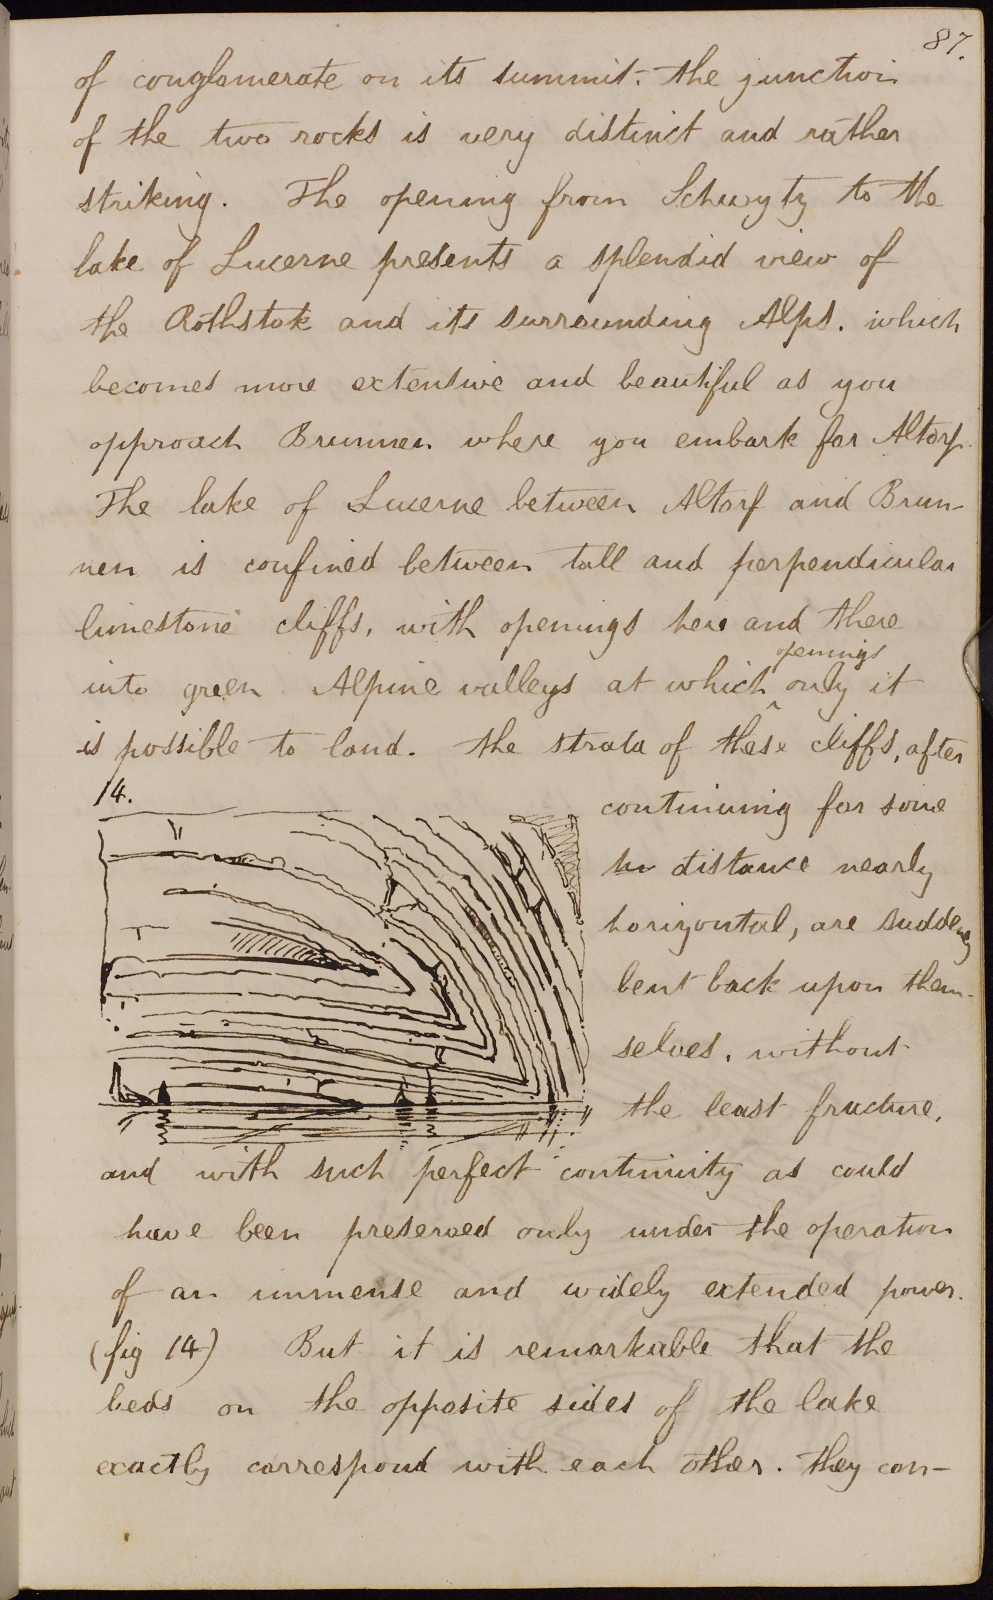 87.
of conglomerate on its summit. the junction
of the two rocks is very distinct and rather
striking. The opening from Schwytz to the
lake of Lucerne presents a splendid view of
the Rothstok and its surrounding Alps. which
becomes more extensive and beautiful as you
approach Brunnen where you embark for Altorf.
The lake of Lucerne between Altorf and Brun-
nen is confined between tall and perpendicular
limestone cliffs, with openings here and there
openings
into green Alpine valleys at which ‸ only it
is possible to land. the strata of these cliffs, after
14.
continuing for some
distance nearly
horizontal, are suddenly
bent back upon them-
selves, without
the least fracture,
and with such perfect continuity as could
have been preserved only under the operation
of an immense and widely extended power.
(fig 14) But it is remarkable that the
beds on the opposite sides of the lake
exactly correspond with each other. they con-